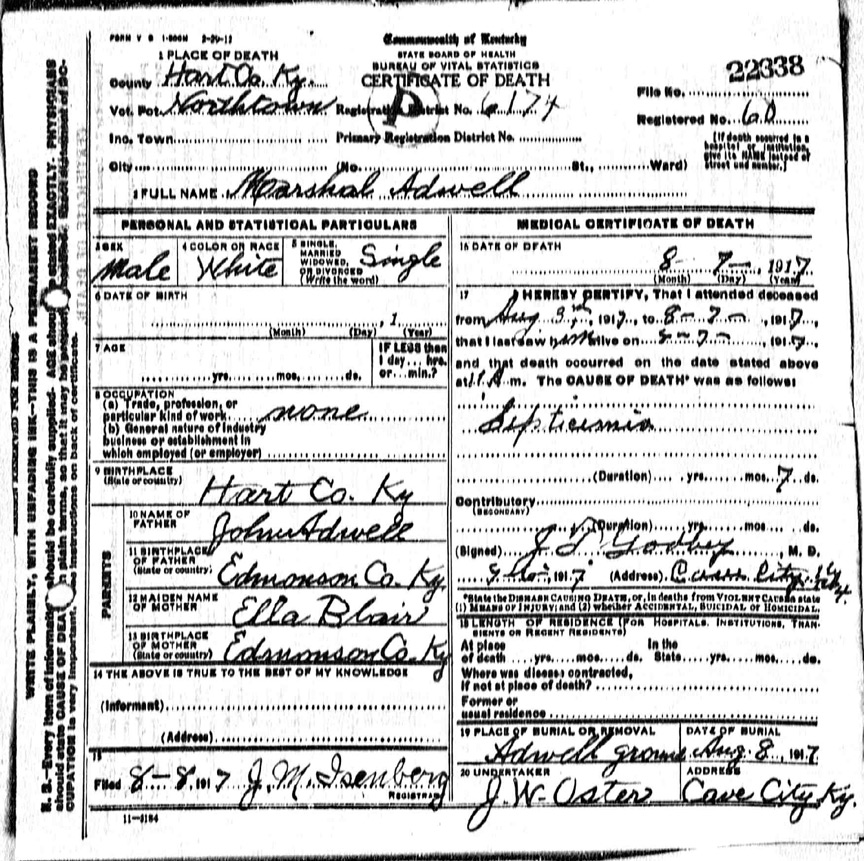 FORM V S 1-500M 2-20-12
Commonwealth of Kentucky
STATE BOARD OF HEALTH
BUREAU OF VITAL STATISTICS
CERTIFICATE OF DEATH
1 PLACE OF DEATH
County Hart Co. Ky.
Vot. Pct. Northtown Registration District No. 6174
Inc. Town Primary Registration District No.
City (No. St., Ward)
File No. 22338
Registered No. 60
[If death occurred in a
hospital or institution,
give its NAME instead of
street and number.]
2 FULL NAME Marshal Adwell
PERSONAL AND STATISTICAL PARTICULARS
3 SEX
Male
4 COLOR OR RACE
White
5 SINGLE,
MARRIED
WIDOWED,
OR DIVORCED
(Write the word)
Single
6 DATE OF BIRTH
, 1
(Month) (Day) (Year)
7 AGE
yrs. mos. ds.
IF LESS than
1 day... hrs.
or... min.?
8 OCCUPATION
(a) Trade, profession, or
particular kind of work none
(b) General nature of industry
business or establishment in
which employed (or employer)
9 BIRTHPLACE
(State or country)
Hart Co. Ky
PARENTS
10 NAME OF
FATHER
John Adwell
11 BIRTHPLACE
OF FATHER
(State or country)
Edmonson Co. Ky.
12 MAIDEN NAME
OF MOTHER
Ella Blair
13 BIRTHPLACE
OF MOTHER
(State or country)
Edmonson Co. Ky
14 THE ABOVE IS TRUE TO THE BEST OF MY KNOWLEDGE
(Informant)
(Address)
15
Filed 8-8, 1917 J. M. Isenberg
REGISTRAR
11-3184
MEDICAL CERTIFICATE OF DEATH
16 DATE OF DEATH
8 - 7 - , 1917
(Month) (Day) (Year)
17 I HEREBY CERTIFY, That I attended deceased
from Aug 3, 1917, to 8-7-, 1917
that I last saw him alive on 8-7-, 1917,
and that death occurred on the date stated above
at m. The CAUSE OF DEATH* was as follows:
Septicemia
(Duration) yrs. mos. 7 ds.
Contributory
(SECONDARY)
(Duration) yrs. mos. ds.
(Signed) J. T. Godbey, M. D.
1917 (Address) Cave City, Ky.
*State the DISEASE CAUSING DEATH, or, in deaths from VIOLENT CAUSES state
(1) MEANS OF INJURY; and (2) whether ACCIDENTAL, SUICIDAL or HOMICIDAL.
18 LENGTH OF RESIDENCE (FOR HOSPITALS, INSTITUTIONS, TRAN-
SIENTS OR RECENT RESIDENTS)
At place In the
of death yrs. mos. ds. State yrs. mos. ds.
Where was disease contracted,
if not at place of death?
Former or
usual residence
19 PLACE OF BURIAL OR REMOVAL
Adwell
DATE OF BURIAL
Aug. 8, 1917
20 UNDERTAKER
J. W. Oster
ADDRESS
Cave City Ky.
WRITE PLAINLY, WITH UNFADING INK—THIS IS A PERMANENT RECORD
N. B.—Every item of information should be carefully supplied. AGE should be stated EXACTLY. PHYSICIANS
should state CAUSE OF DEATH in plain terms, so that it may be properly
CUPATION is very important. See instructions on back of certificate.